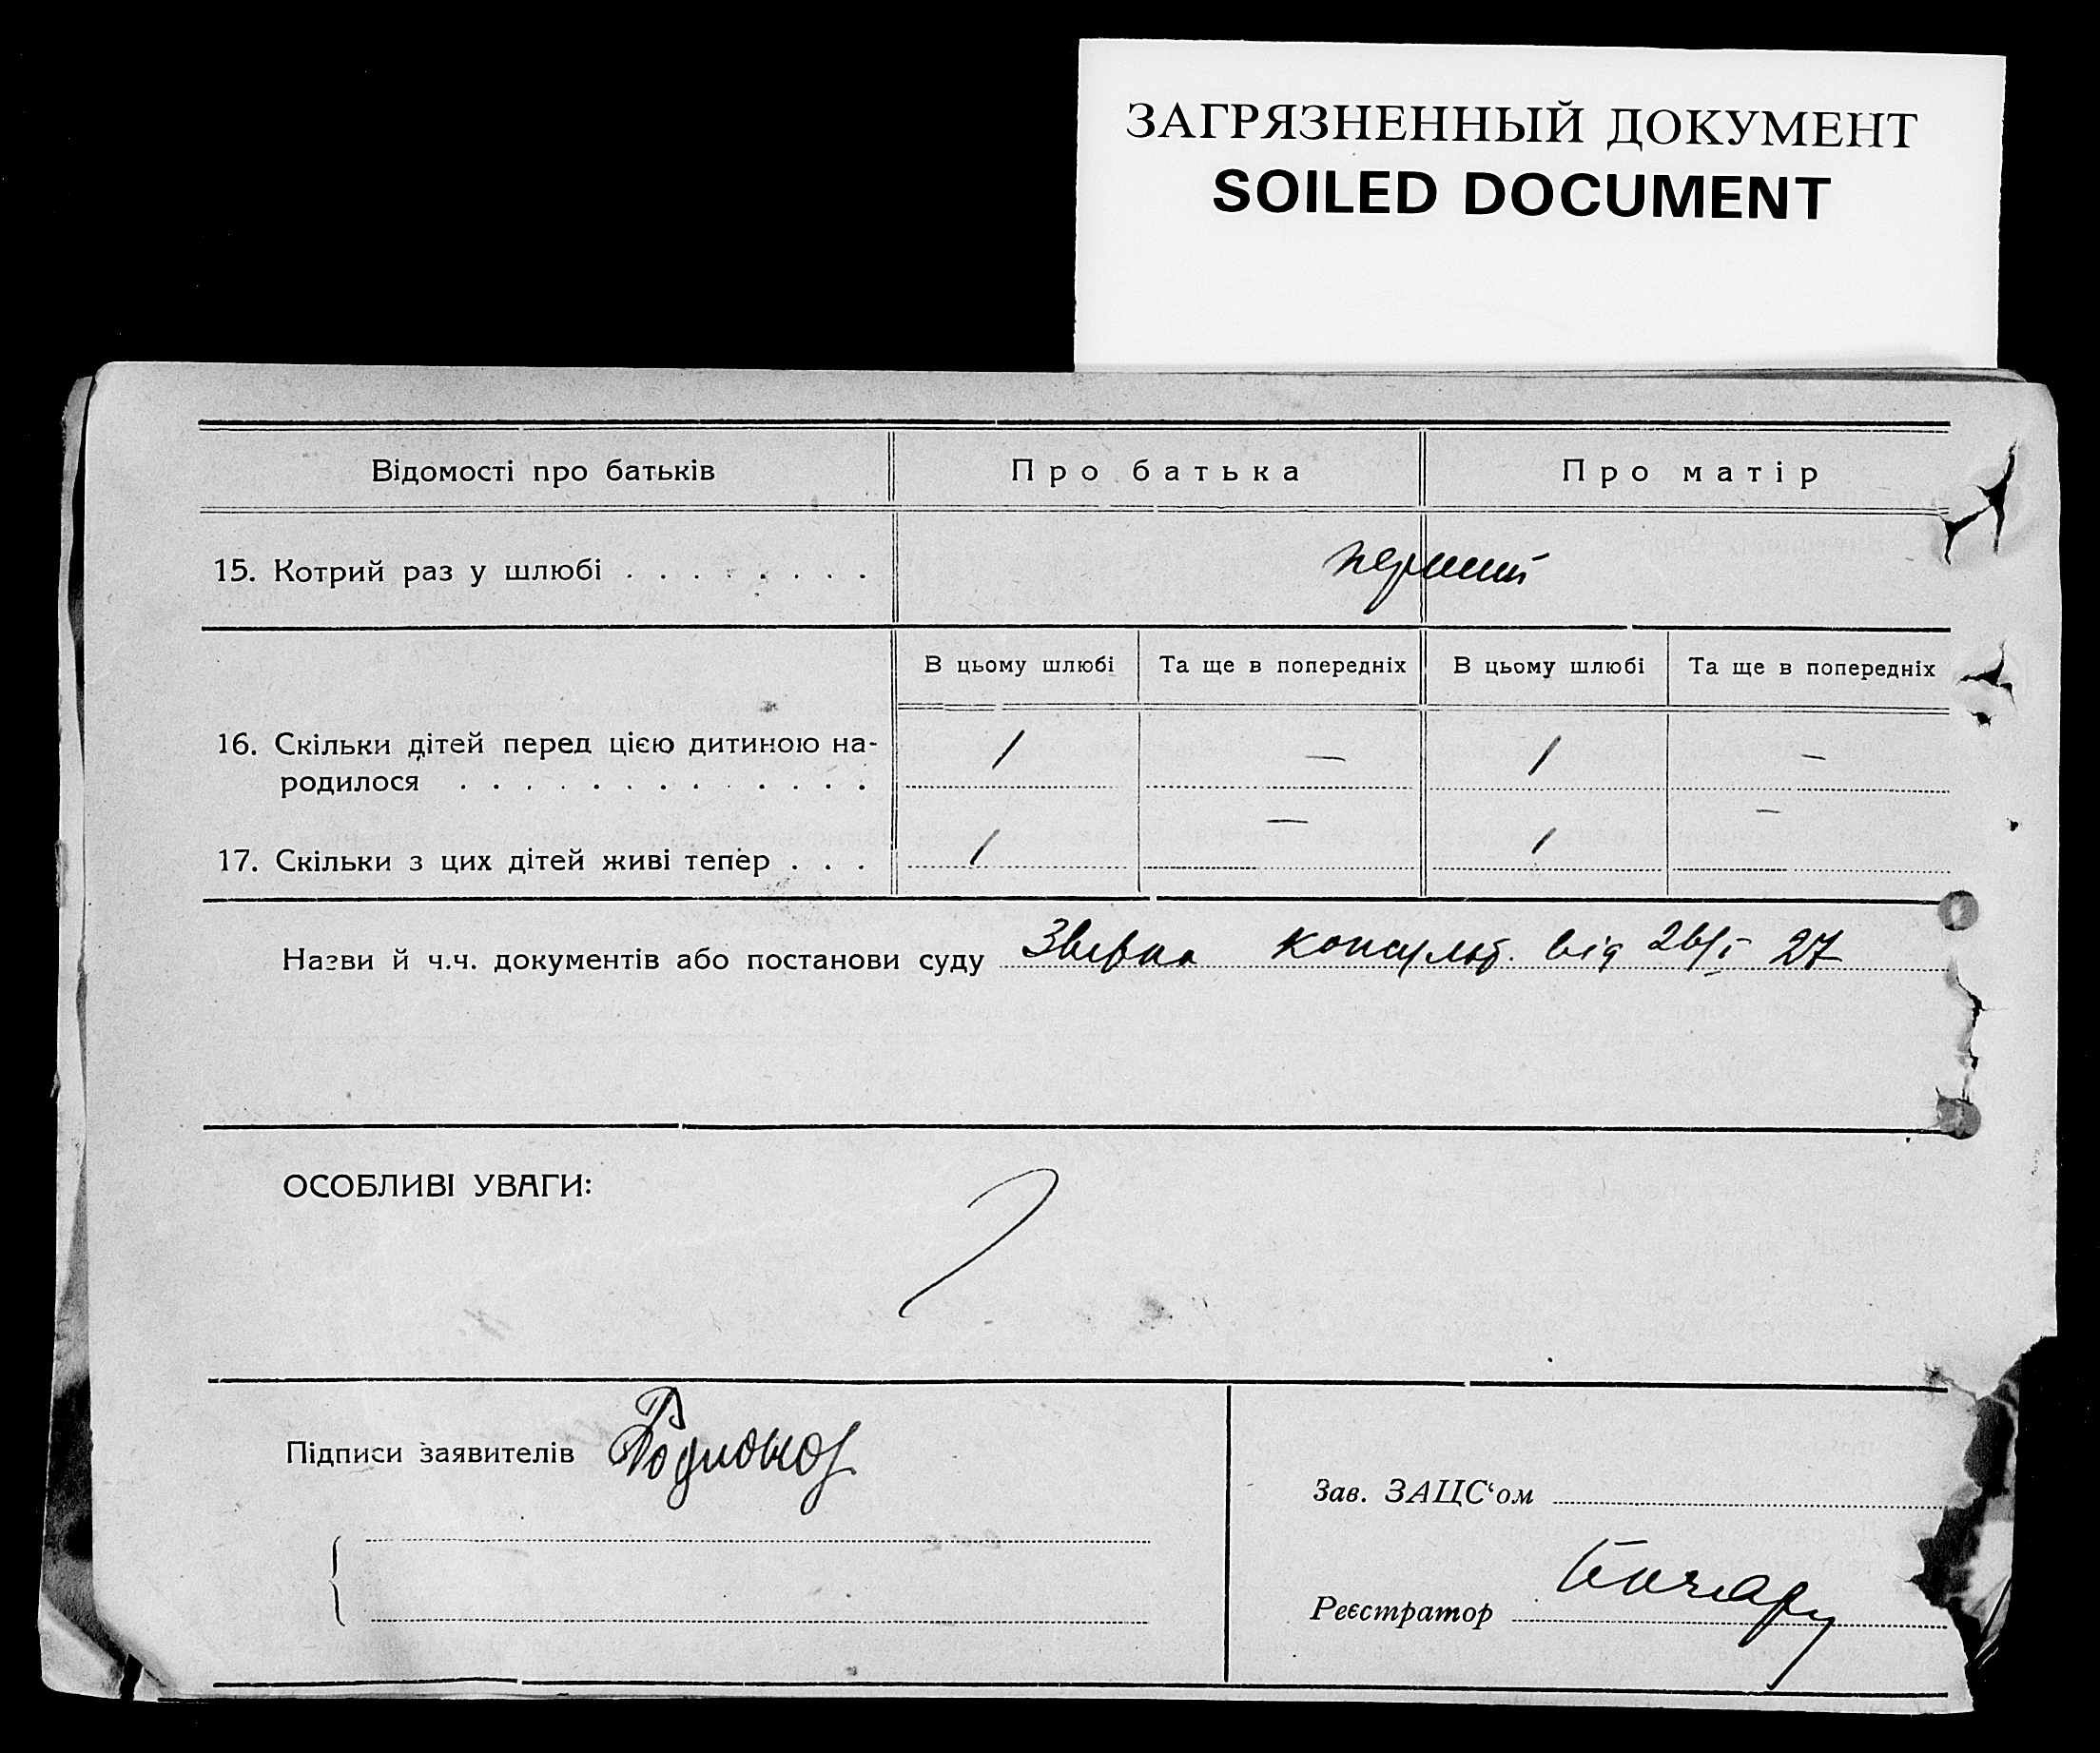 ЗАГРЯЗНЕННЫЙ ДОКУМЕНТ
SOILED DOCUMENT
Відомості про батьків Про батька Про матір
15. Котрий раз у шлюбі . . . . . . . . перший
В цьому шлюбі Та ще в попередніх В цьому шлюбі Та ще в попередніх
16. Скільки дітей перед цією дитиною на-
родилося . . . . . . . . . . . . . 1 — 1 —
17. Скільки з цих дітей живі тепер . . . 1 — 1 —
Назви й ч.ч. документів або постанови суду консульт. від 26/I 27
ОСОБЛИВІ УВАГИ:
Підписи заявителів Родионов
Зав. ЗАЦС‘ом
Реєстратор